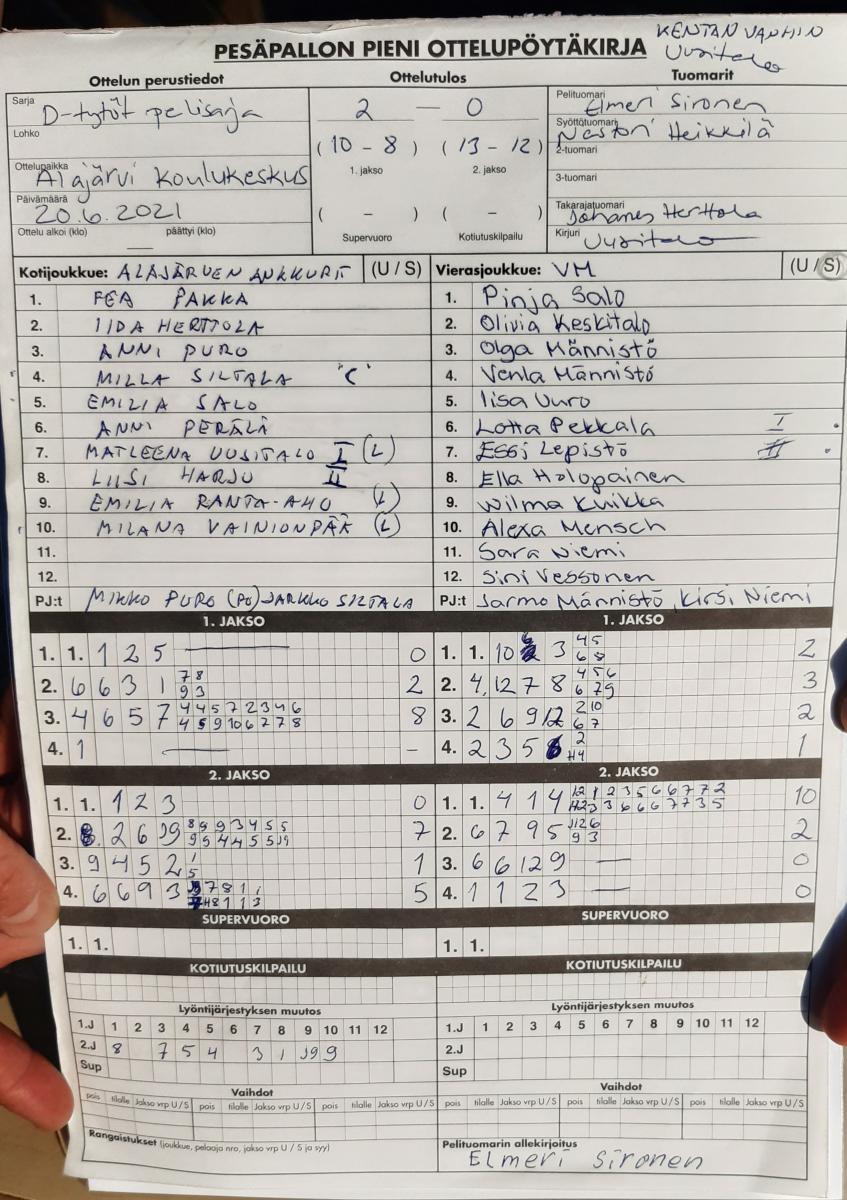 KENTÄN VANHIN
Uusitalo
PESÄPALLON PIENI OTTELUPÖYTÄKIRJA
Ottelun perustiedot Ottelutulos Tuomarit
Sarja D-tytöt pelisarja
Lohko
Ottelupaikka Alajärvi Koulukeskus
Päivämäärä 20.6.2021
Ottelu alkoi (klo) päättyi (klo)
2 — 0
(10 – 8) (13 – 12)
1. jakso 2. jakso
( – ) ( – )
Supervuoro Kotiutuskilpailu
Pelituomari Elmeri Sironen
Syöttötuomari Nestori Heikkilä
2-tuomari
3-tuomari
Takarajatuomari Johanes Herttola
Kirjuri Uusitalo
Kotijoukkue: ALAJÄRVEN ANKKURIT (U / S)
1. FEA PAKKA
2. IIDA HERTTOLA
3. ANNI PURO
4. MILLA SILTALA "C"
5. EMILIA SALO
6. ANNI PERÄLÄ
7. MATLEENA UUSITALO I (L)
8. LIISI HARJU II
9. EMILIA RANTA-AHO (L)
10. MILANA VAINIONPÄÄ (L)
11.
12.
PJ:t MIKKO PURO (PO) JARKKO SILTALA
Vierasjoukkue: VM (U / S)
1. Pinja Salo
2. Olivia Keskitalo
3. Olga Männistö
4. Venla Männistö
5. Iisa Uuro
6. Lotta Pekkala I
7. Essi Lepistö II
8. Ella Holopainen
9. Wilma Kuikka
10. Alexa Mensch
11. Sara Niemi
12. Sini Vessonen
PJ:t Jarmo Männistö, Kirsi Niemi
1. JAKSO
1. 1. 1 2 5 — 0
2. 6 6 3 1 7 8 2
9 3
3. 4 6 5 7 4 4 5 7 2 3 4 6 8
4 5 9 10 6 7 7 8
4. 1 — –
1. JAKSO
1. 1. 10 6 3 4 5 2
6 8
2. 4 12 7 8 4 5 6 3
6 7 9
3. 2 6 9 12 2 10 2
6 7
4. 2 3 5 8 2 1
H4
2. JAKSO
1. 1. 1 2 3 0
2. 8. 2 6 J9 8 9 9 3 4 5 5 7
9 5 4 4 5 5 J9
3. 9 4 5 2 1 1
5
4. 6 6 9 3 7 8 1 1 5
H8 1 1 3
2. JAKSO
1. 1. 4 1 4 12 1 2 3 5 6 6 7 7 2 10
3 3 6 6 6 7 7 3 5
2. 6 7 9 5 J12 6 2
9 3
3. 6 6 12 9 — 0
4. 1 1 2 3 — 0
SUPERVUORO SUPERVUORO
1. 1. 1. 1.
KOTIUTUSKILPAILU KOTIUTUSKILPAILU
Lyöntijärjestyksen muutos
1.J 1 2 3 4 5 6 7 8 9 10 11 12
2.J 8 7 5 4 3 1 J9 9
Sup
Lyöntijärjestyksen muutos
1.J 1 2 3 4 5 6 7 8 9 10 11 12
2.J
Sup
Vaihdot
pois tilalle Jakso vrp U / S pois tilalle Jakso vrp U / S pois tilalle Jakso vrp U / S
Vaihdot
pois tilalle Jakso vrp U / S pois tilalle Jakso vrp U / S pois tilalle Jakso vrp U / S
Rangaistukset (joukkue, pelaaja nro, jakso vrp U / S ja syy)
Pelituomarin allekirjoitus
Elmeri Sironen